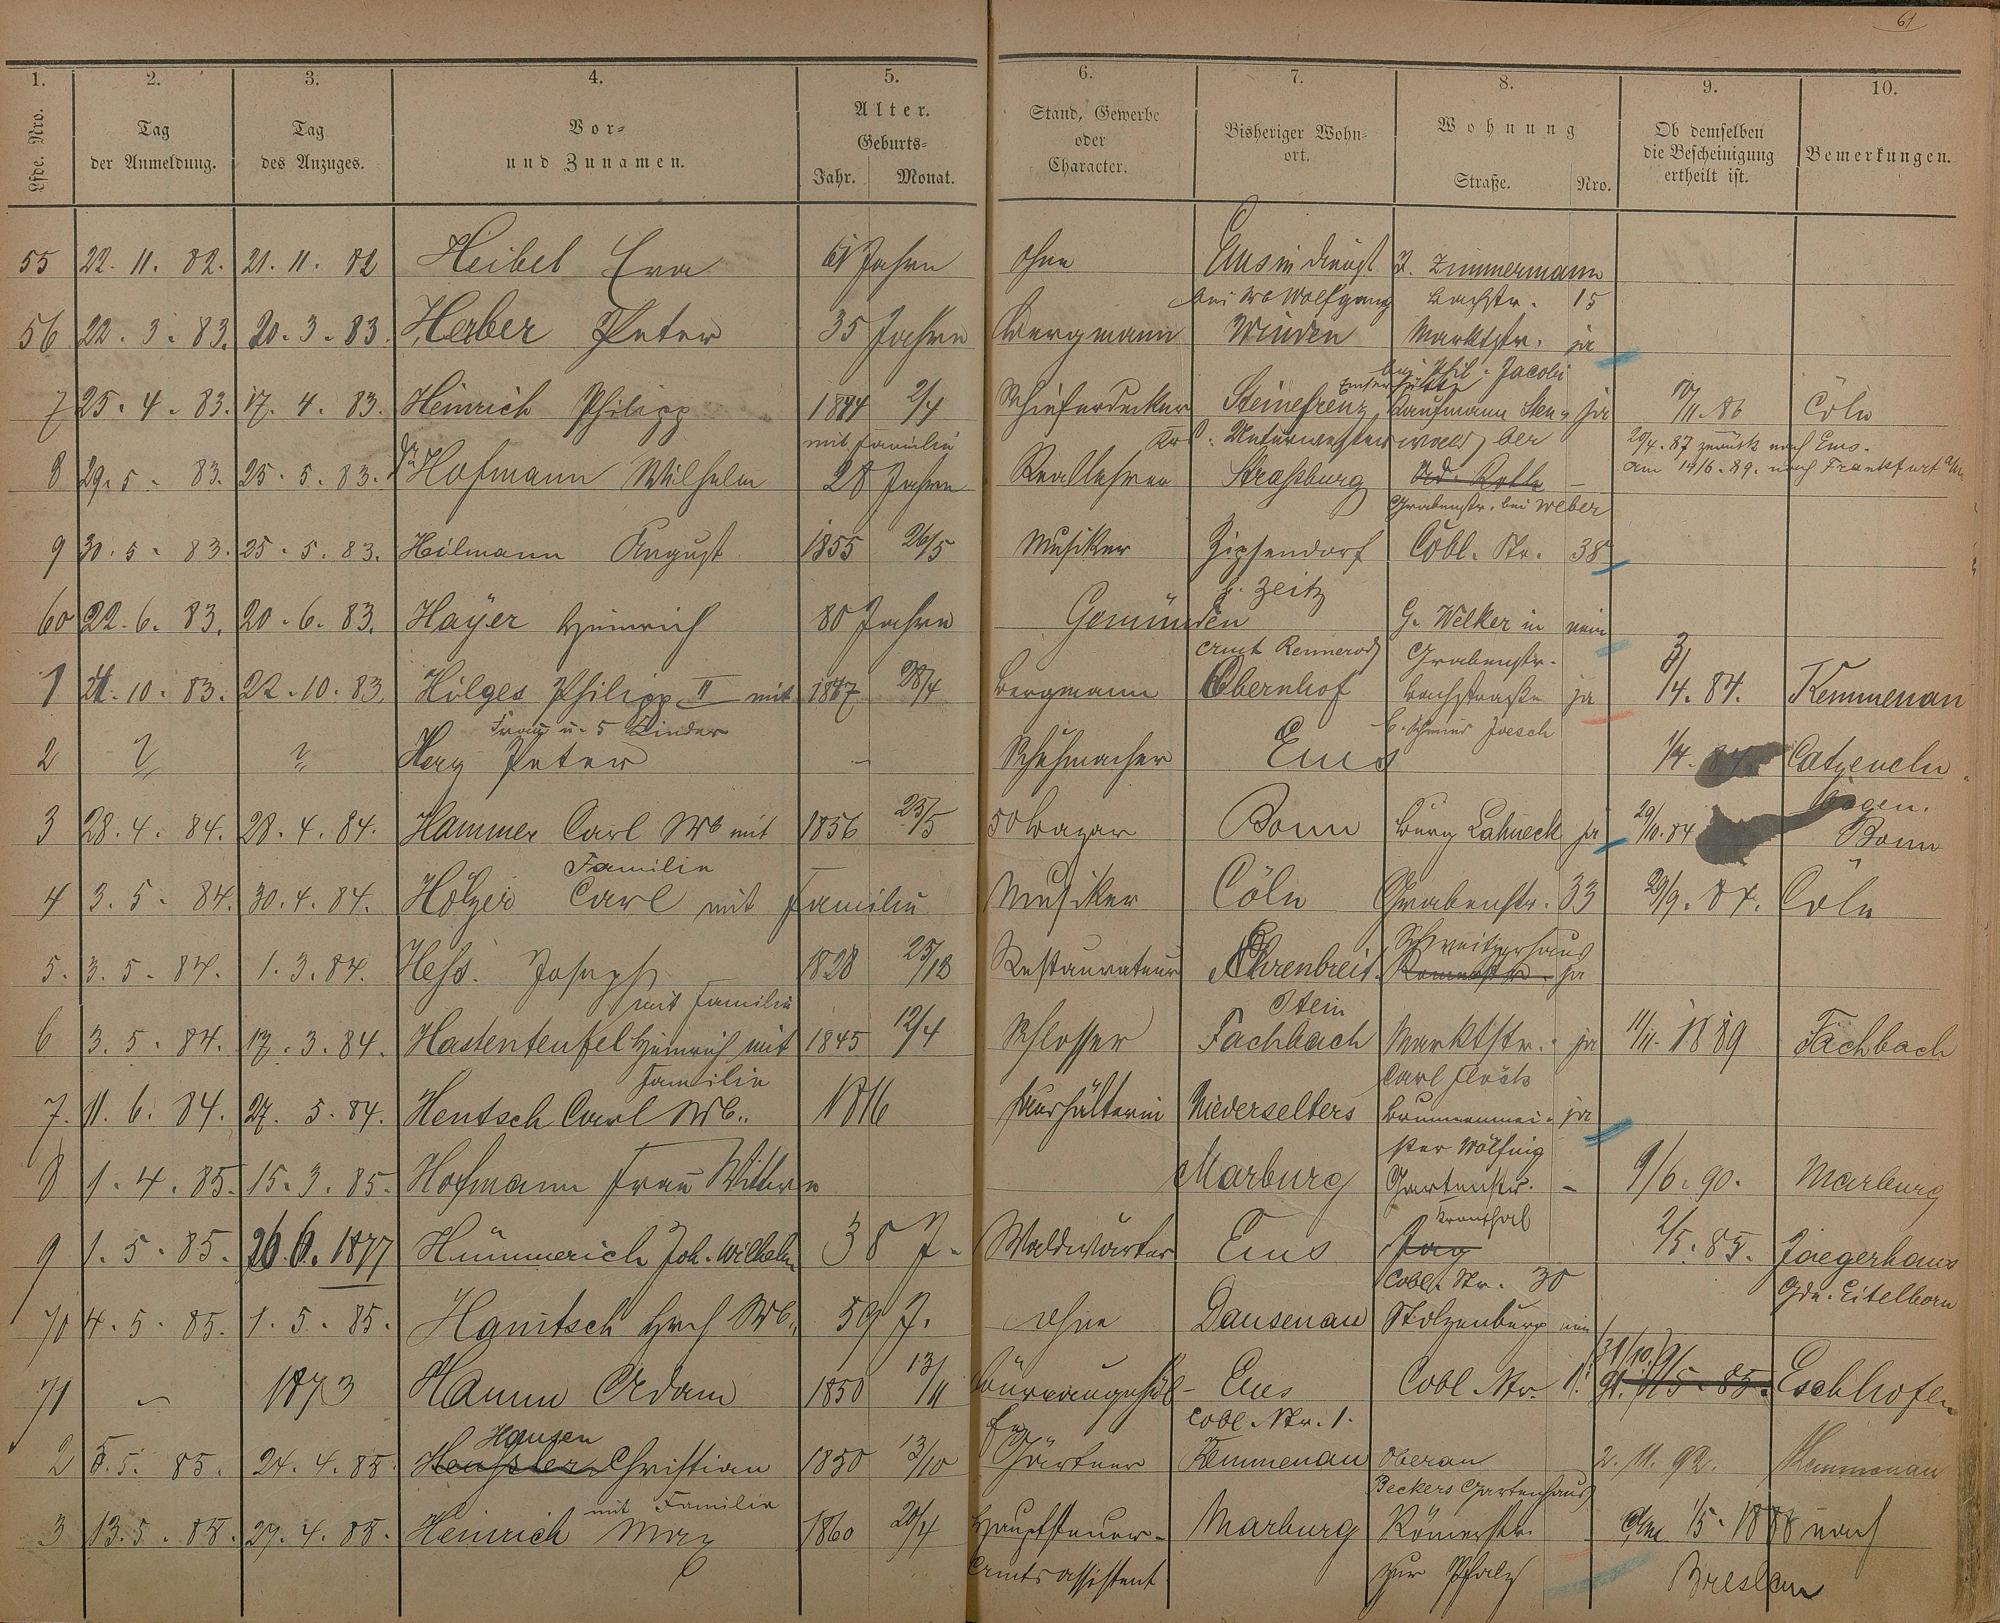 61
1. 2. 3. 4. 5. 6. 7. 8. 9. 10.
Lfde. Nro. Tag der Anmeldung. Tag des Anzuges. Vor- und Zunamen. Alter. Geburts- Jahr. Monat. Stand, Gewerbe oder Character. Bisheriger Wohnort. Wohnung Straße. Nro. Ob demselben die Bescheinigung ertheilt ist. Bemerkungen.
55 22. 11. 82. 21. 11. 82 Heibel Eva 61 Jahren ohne Ems in dienst Zimmermann
bei Wb Wolfgang Bachstr. 15
56 22. 3. 83. 20. 3. 83. Herber Peter 35 Jahre Bergmann Winden Marktstr. ja
bei Phil. Jacobi
Emserhütte
7 25. 4. 83. 17. 4. 83. Heinrich Philipp 1844 2/4 Schieferdecker Steinefrenz Kaufmann ja 10/11. 86 Cöln
mit Familie Unterwesterwald 20/4. 87 zurück nach Ems.
8 29. 5. 83. 25. 5. 83. Dr Hofmann Wilhelm 28 Jahre Reallehrer Straßburg am 14/6. 89. nach Frankfurt a/M
Grabenstr. bei Weber
9 30. 5. 83. 25. 5. 83. Heilmann August 1855 26/5 Musiker Zipsendorf Cobl. Str. 38
b. Zeitz
60 22. 6. 83. 20. 6. 83. Hayer Heinrich 80 Jahre Gemünden G. Welker in nein
Amt Rennerod Grabenstr.
1 24. 10. 83. 22. 10. 83. Hilges Philipp II mit 1847 28/4 Bergmann Obernhof Bachstraße ja 3/4. 84. Kemmenau
Frau u. 5 Kinder
2 ? ? Herz Peter — Schuhmacher Ems 1/4. 84 Catzenelnbogen.
3 28. 4. 84. 28. 4. 84. Hammer Carl Wb mit 1856 25/5 50 Bazar Bonn Burg Lahneck ja 29/10. 84 Bonn
Familie
4 3. 5. 84. 30. 4. 84. Hölzer Carl mit Familie Musiker Cöln Grabenstr. 33 29/9. 84. Cöln
5. 3. 5. 84. 1. 3. 84. Heß. Joseph 1828 25/12 Restaurateur Ehrenbreitstein Schweitzerhaus Römerstr. ja
mit Familie
6 3. 5. 84. 17. 3. 84. Hastenteufel Heinrich mit 1845 12/4 Schlosser Fachbach Marktstr. ja 11/11. 1889 Fachbach
Familie Carl Flöck
7. 11. 6. 84. 27. 5. 84. Hentsch Carl Wb. 1816 Haushälterin Niederselters Brunnenmeister Wölfing ja
8 1. 4. 85. 15. 3. 85. Hofmann Frau Wittwe Marburg Gartenstr. — 9/6. 90. Marburg
Kronthal
9 1. 5. 85. 26. 6. 1877 Hümmerich Joh. Wilhelm 38 J. Waldwärter Ems Jag 2/5. 85. Jaegerhaus
Cobl. Str. 30 Gde. Eitelborn
70 4. 5. 85. 1. 5. 85. Hanitsch Hrch Wb. 59 J. ohne Dausenau Stolzenburg nein
71 — 1873 Hamm Adam 1850 13/11 Büreaugehülfe Ems Cobl. Str. 1. 31/10. 91. 9/5. 85. Eschhofen
Cobl. Str. 1.
Hausen
2 5. 5. 85. 24. 4. 85. Heußler Christian 1850 13/10 Gärtner Kemmenau Oberau 2. 11. 92. Kemmenau
mit Familie Beckers Gartenhaus
3 13. 5. 85. 27. 4. 85. Heinrich Max 1860 20/4 Hauptsteuer- Marburg Römerstr. Am 1/5. 1888 nach
Amtsassistent zur Pfalz Breslau